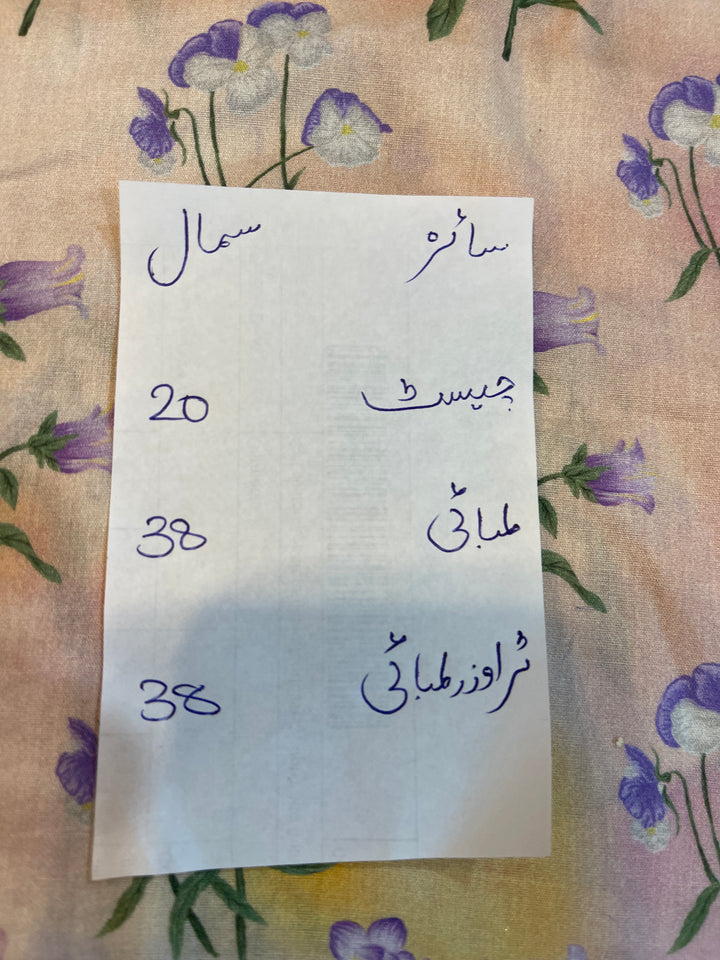 سائز سمال
چیسٹ 20
لمبائی 38
ٹراوزر لمبائی 38